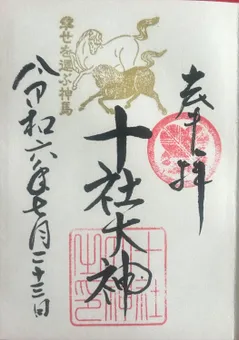 奉拝
十社大神
幸せを運ぶ神馬
令和六年七月二十三日
十社大神之印